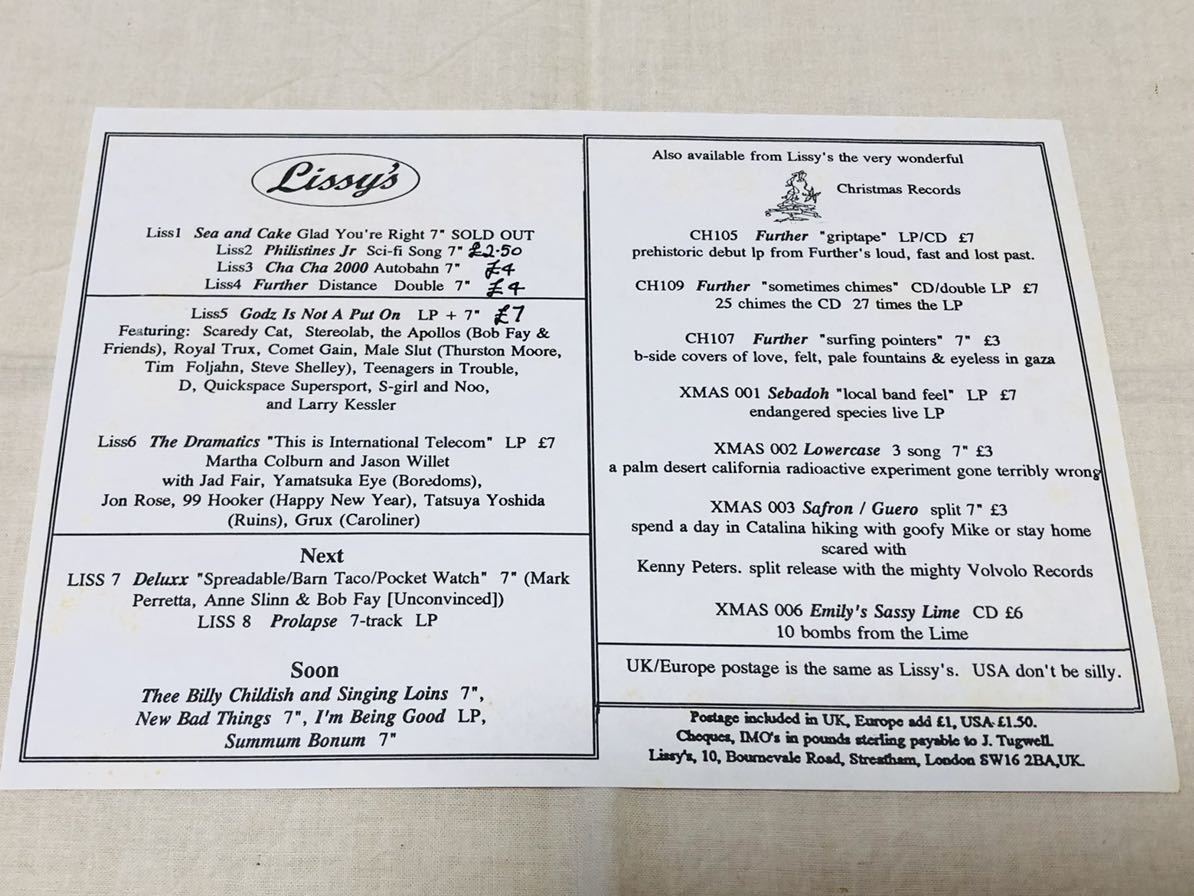 Lissy's
Liss1 Sea and Cake Glad You're Right 7" SOLD OUT
Liss2 Philistines Jr Sci-fi Song 7" £2.50
Liss3 Cha Cha 2000 Autobahn 7" £4
Liss4 Further Distance Double 7" £4
Liss5 Godz Is Not A Put On LP + 7" £7
Featuring: Scaredy Cat, Stereolab, the Apollos (Bob Fay &
Friends), Royal Trux, Comet Gain, Male Slut (Thurston Moore,
Tim Foljahn, Steve Shelley), Teenagers in Trouble,
D, Quickspace Supersport, S-girl and Noo,
and Larry Kessler
Liss6 The Dramatics "This is International Telecom" LP £7
Martha Colburn and Jason Willet
with Jad Fair, Yamatsuka Eye (Boredoms),
Jon Rose, 99 Hooker (Happy New Year), Tatsuya Yoshida
(Ruins), Grux (Caroliner)
Next
LISS 7 Deluxx "Spreadable/Barn Taco/Pocket Watch" 7" (Mark
Perretta, Anne Slinn & Bob Fay [Unconvinced])
LISS 8 Prolapse 7-track LP
Soon
Thee Billy Childish and Singing Loins 7",
New Bad Things 7", I'm Being Good LP,
Summum Bonum 7"
Also available from Lissy's the very wonderful
Christmas Records
CH105 Further "griptape" LP/CD £7
prehistoric debut lp from Further's loud, fast and lost past.
CH109 Further "sometimes chimes" CD/double LP £7
25 chimes the CD 27 times the LP
CH107 Further "surfing pointers" 7" £3
b-side covers of love, felt, pale fountains & eyeless in gaza
XMAS 001 Sebadoh "local band feel" LP £7
endangered species live LP
XMAS 002 Lowercase 3 song 7" £3
a palm desert california radioactive experiment gone terribly wrong
XMAS 003 Safron / Guero split 7" £3
spend a day in Catalina hiking with goofy Mike or stay home
scared with
Kenny Peters. split release with the mighty Volvolo Records
XMAS 006 Emily's Sassy Lime CD £6
10 bombs from the Lime
UK/Europe postage is the same as Lissy's. USA don't be silly.
Postage included in UK, Europe add £1, USA £1.50.
Cheques, IMO's in pounds sterling payable to J. Tugwell.
Lissy's, 10, Bournevale Road, Streatham, London SW16 2BA,UK.